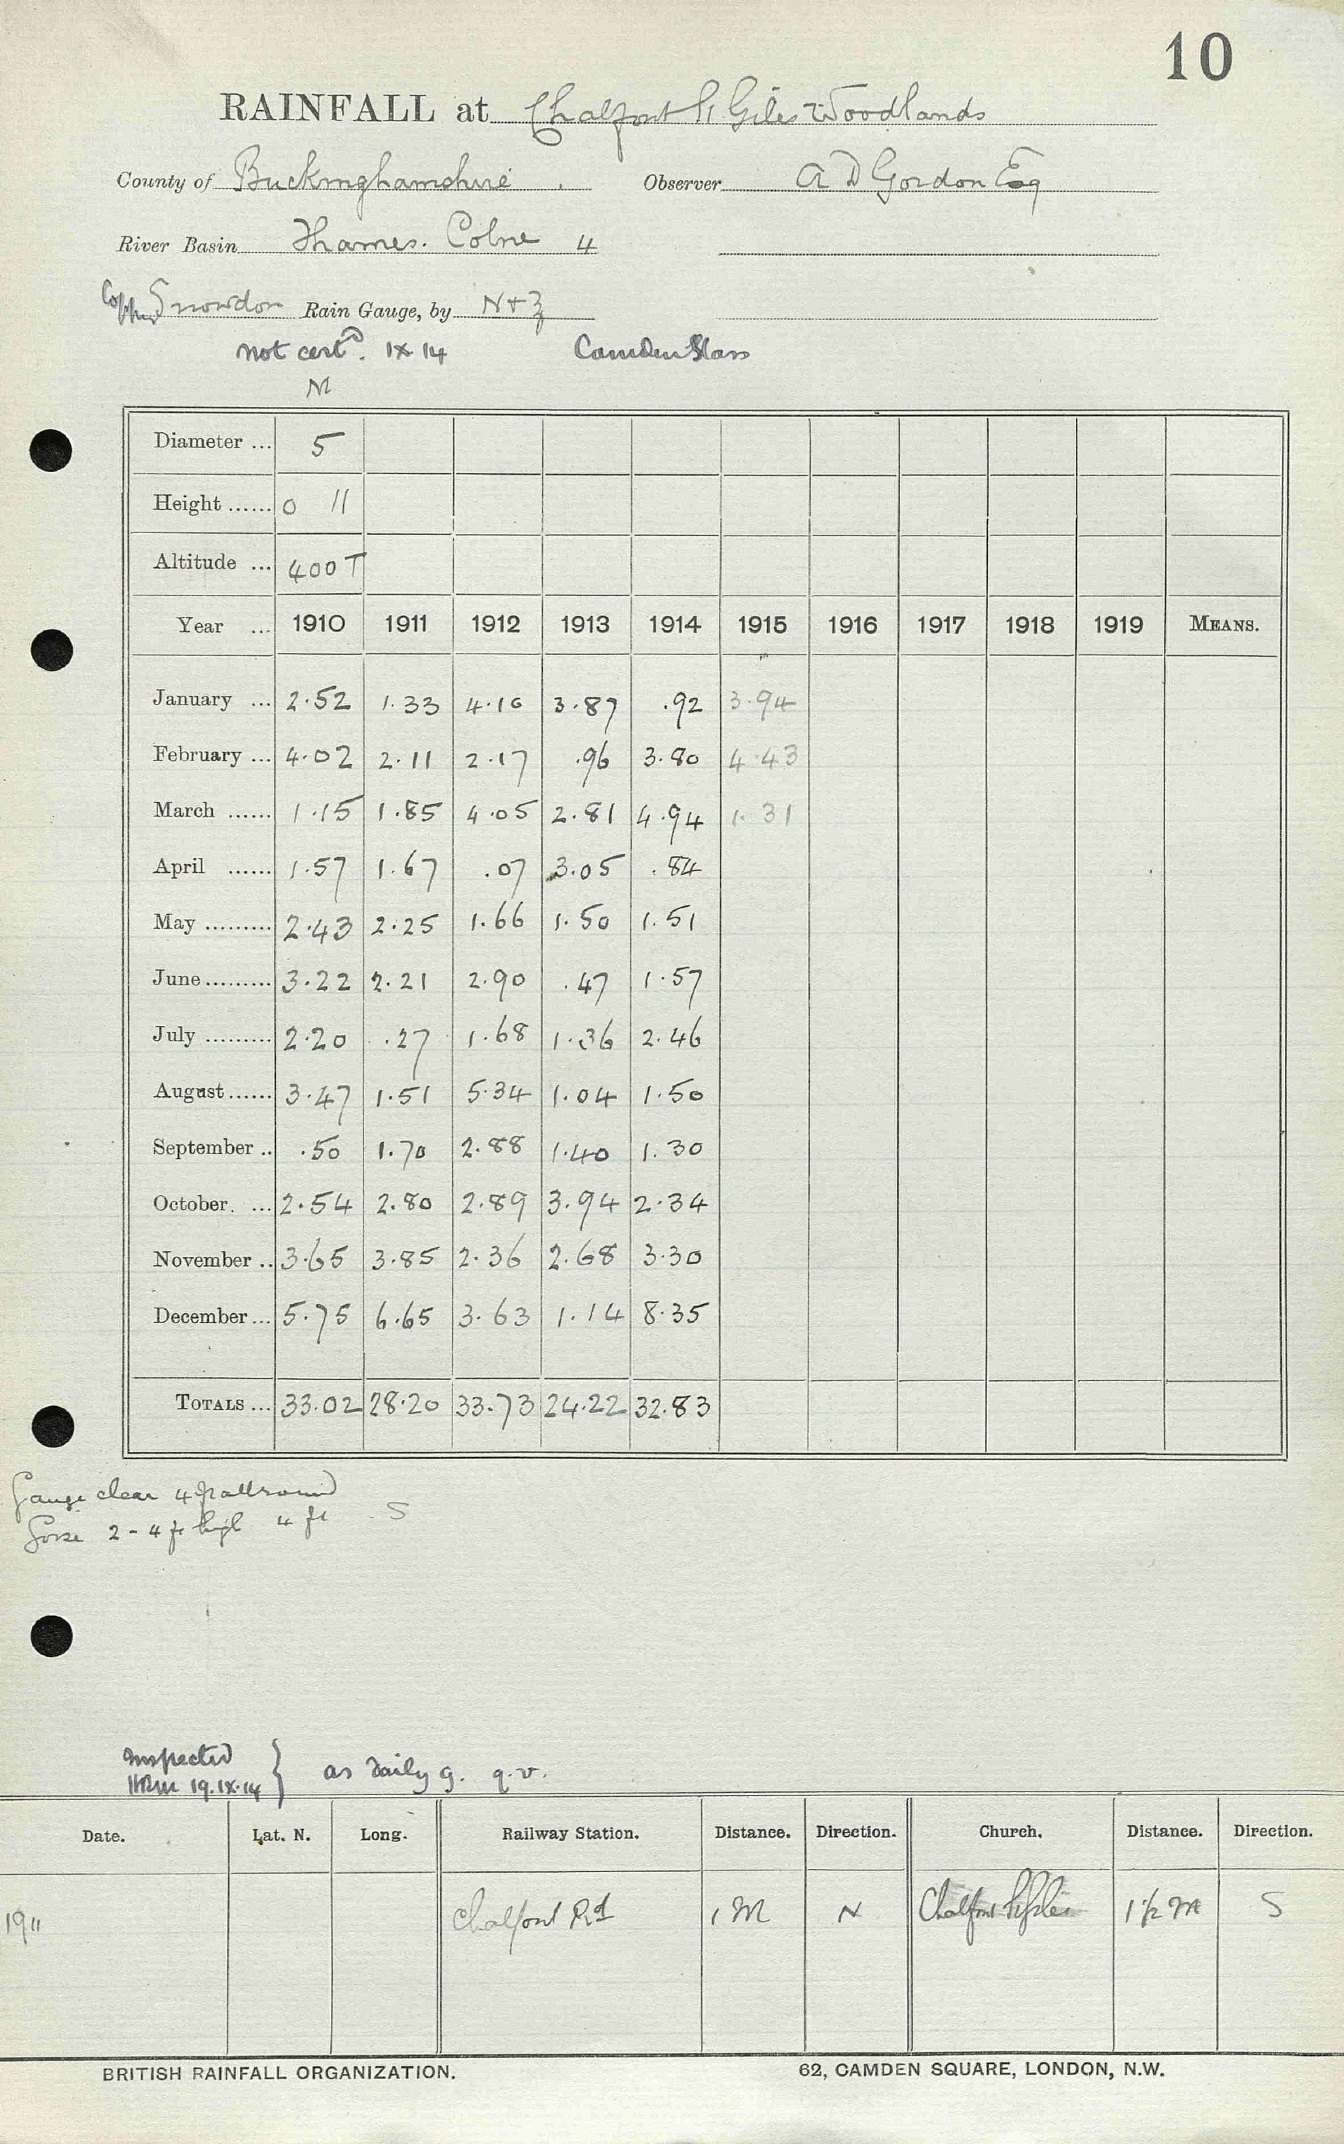 10
RAINFALL at Chalfont St Giles Woodlands
County of Buckinghamshire. Observer A D Gordon Esq
River Basin Thames. Colne 4
Copper Snowdon Rain Gauge, by N+Z
not certd. IX 14 Camden Glass
M
Diameter ... 5
Height ...... 0 11
Altitude ... 400 T
Year ... 1910 1911 1912 1913 1914 1915 1916 1917 1918 1919 MEANS.
January ... 2.52 1.33 4.10 3.87 .92 3.94
February ... 4.02 2.11 2.17 .96 3.80 4.43
March ...... 1.15 1.85 4.05 2.81 4.94 1.31
April ...... 1.57 1.67 .07 3.05 .84
May ......... 2.43 2.25 1.66 1.50 1.51
June ......... 3.22 2.21 2.90 .47 1.57
July ......... 2.20 .27 1.68 1.36 2.46
August ...... 3.47 1.51 5.34 1.04 1.50
September .. .50 1.70 2.88 1.40 1.30
October. ... 2.54 2.80 2.89 3.94 2.34
November .. 3.65 3.85 2.36 2.68 3.30
December ... 5.75 6.65 3.63 1.14 8.35
TOTALS ... 33.02 28.20 33.73 24.22 32.83
Gauge clear 4 ft all round
Gorse 2 - 4 ft high 4 ft S
Inspected
HRM 19.IX.14 } as daily g. q.v.
Date. Lat. N. Long. Railway Station. Distance. Direction. Church. Distance. Direction.
1911 Chalfont Rd 1 M N Chalfont St Giles 1½ M S
BRITISH RAINFALL ORGANIZATION. 62, CAMDEN SQUARE, LONDON, N.W.